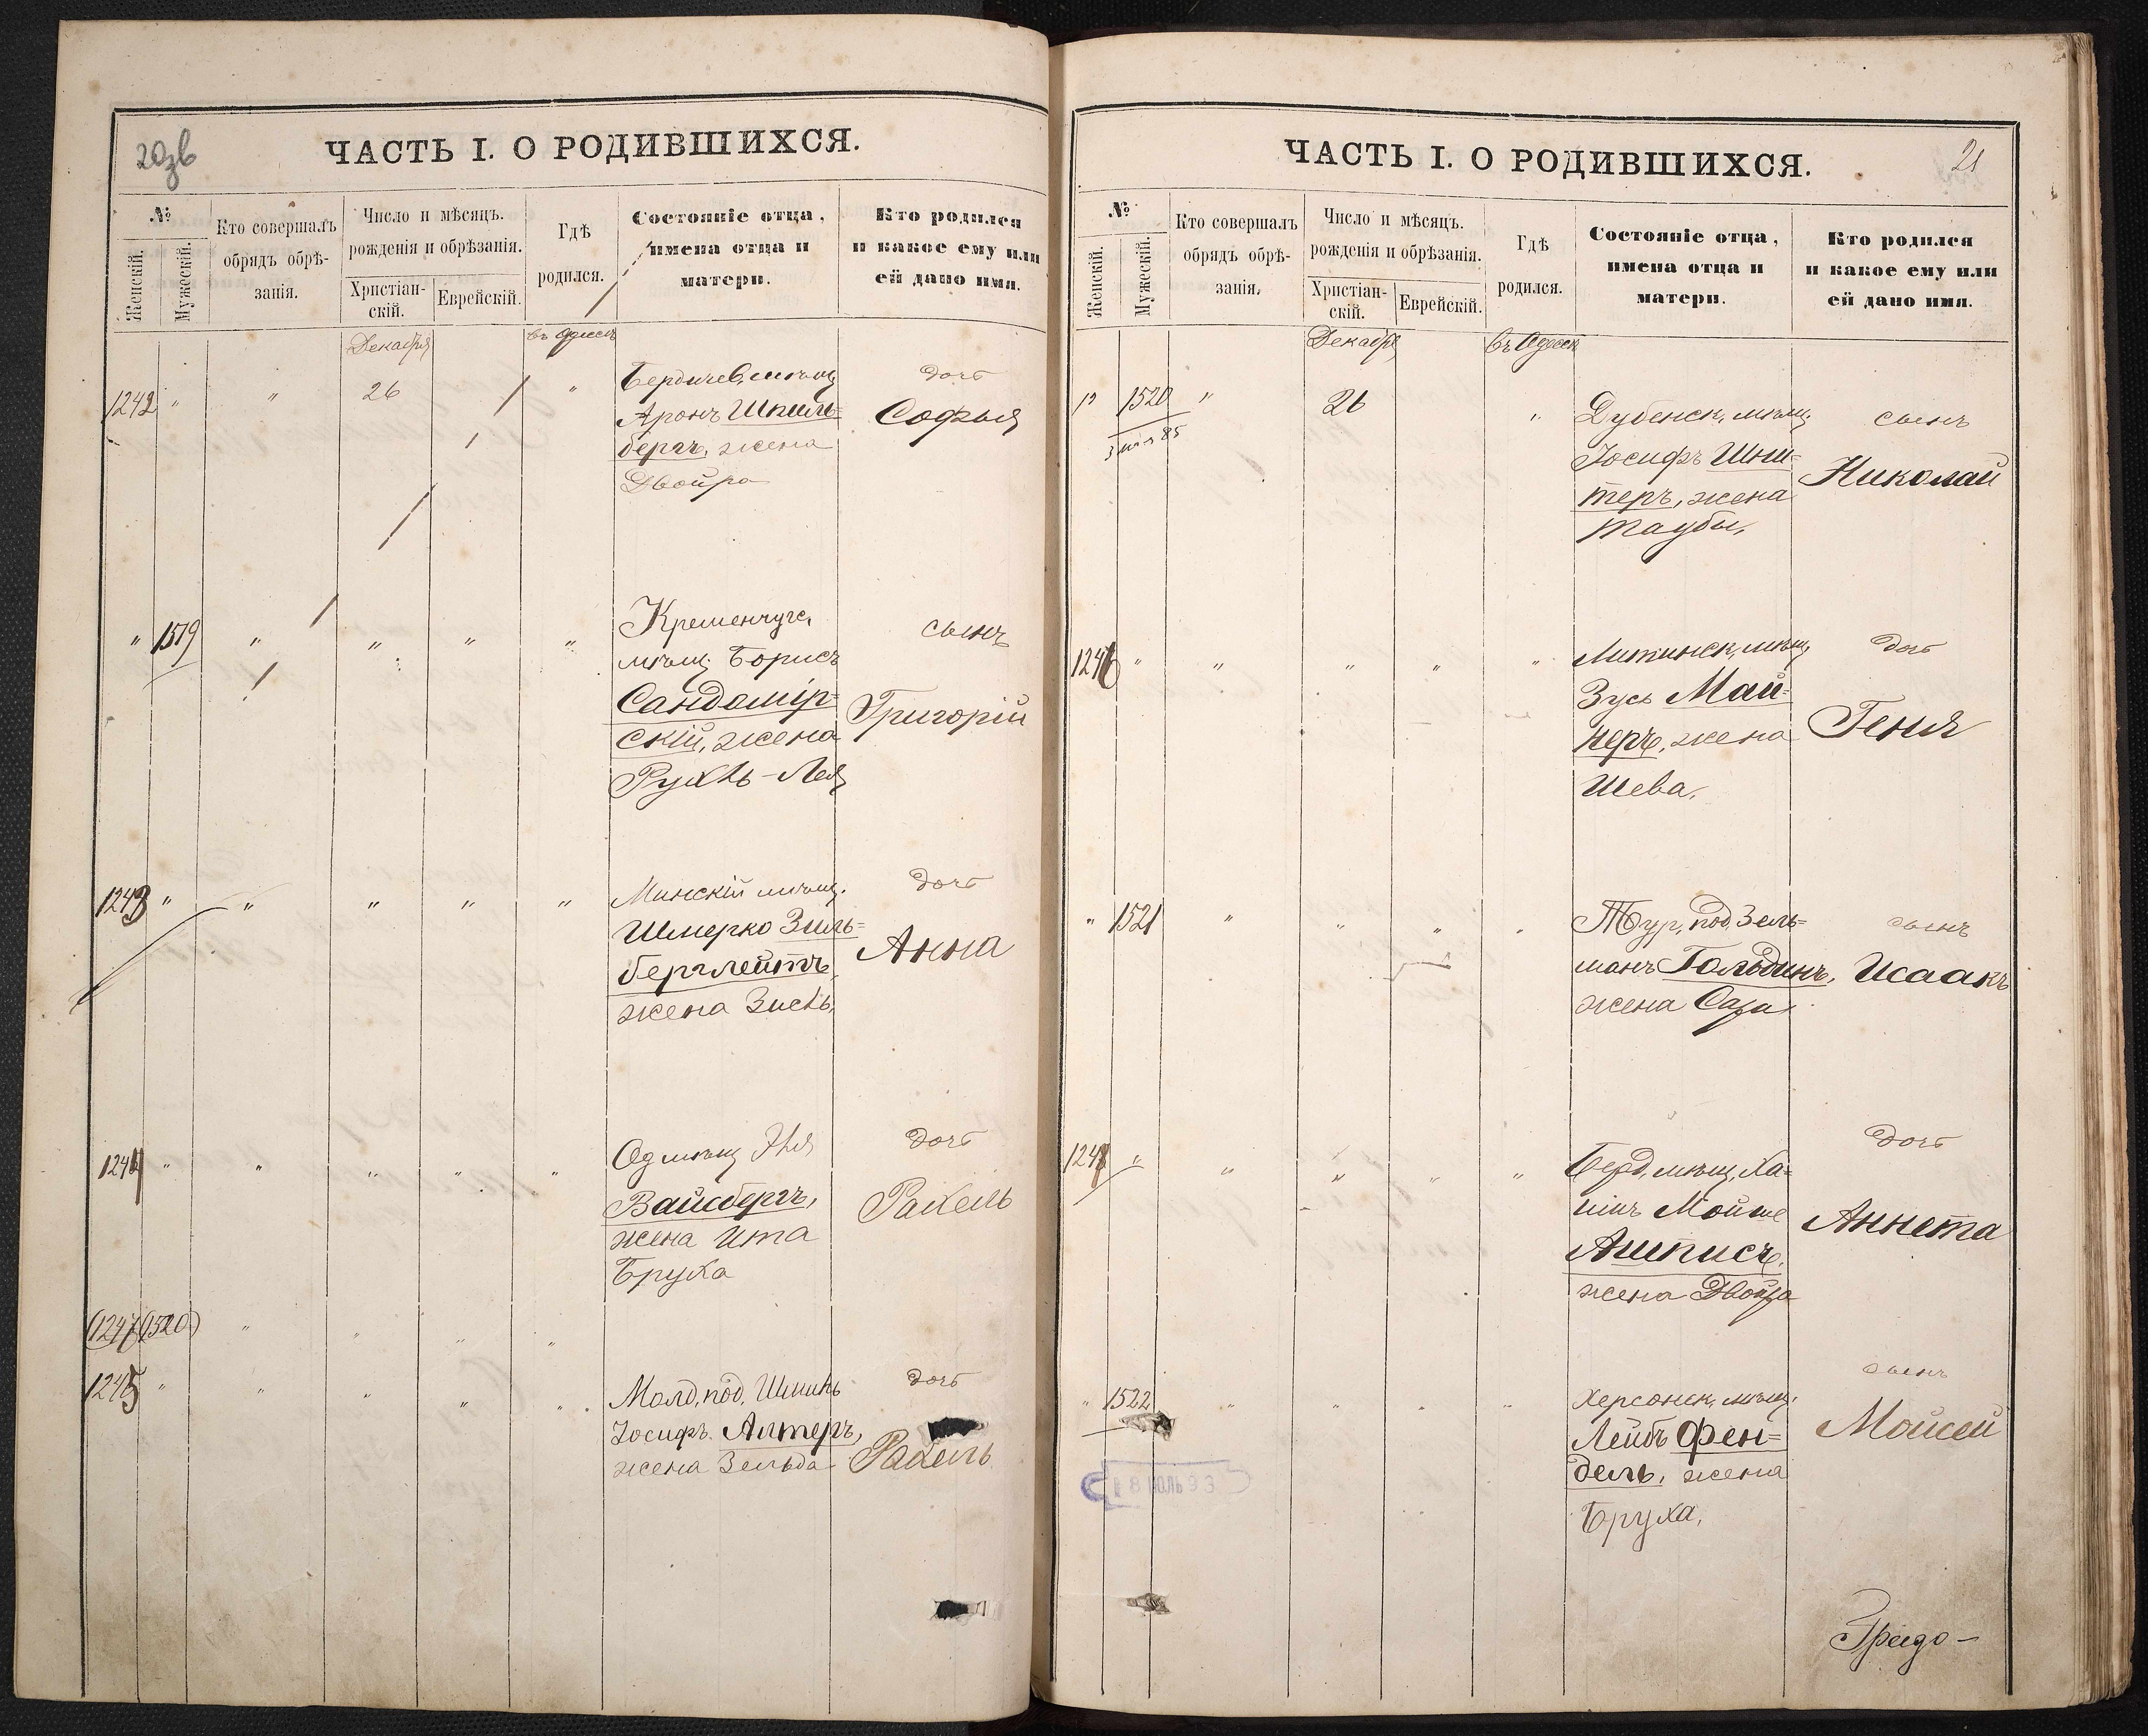 20зв
ЧАСТЬ I. О РОДИВШИХСЯ.
№
Женскій.
Мужескій.
Кто совершалъ
обрядъ обрѣ-
занія.
Число и мѣсяцъ.
рожденія и обрѣзанія.
Христіан-
скій.
Еврейскій.
Гдѣ
родился.
Состояніе отца,
имена отца и
матери.
Кто родился
и какое ему или
ей дано имя.
Декабря
въ Одессѣ
1242 " " 26 "
Бердичев. мѣщ.
Аронъ Шпиль=
бергъ, жена
Двойра
дочь
Софья
" 1519 " " " "
Кременчугс.
мѣщ. Борисъ
Сандомір=
скій, жена
Рухль-Лея
сынъ
Григорій
1243 " " " " "
Минскій мѣщ.
Шмерко Зиль=
берглейтъ,
жена Зисль.
дочь
Анна
1244 " " " " "
Од мѣщ Эля
Вайсбергъ,
жена Ита
Бруха
дочь
Рахель
(1520) " " " "
1245 " " " " "
Молд. под.
Іосифъ Алтеръ,
жена Зельда
дочь
Рахель
ЧАСТЬ I. О РОДИВШИХСЯ.
21
№
Женскій.
Мужескій.
Кто совершалъ
обрядъ обрѣ-
занія.
Число и мѣсяцъ.
рожденія и обрѣзанія.
Христіан-
скій.
Еврейскій.
Гдѣ
родился.
Состояніе отца,
имена отца и
матери.
Кто родился
и какое ему или
ей дано имя.
Декабря
въ Одессѣ
" 1520 " 26 "
85
Дубенск. мѣщ.
Іосифъ Шни=
теръ, жена
Таубы,
сынъ
Николай
1246 " " " " "
Литинск. мѣщ.
Зусь Май=
неръ, жена
Шева.
дочь
Геня
" 1521 " " " "
Тур. под. Зель=
манъ Гольдинъ,
жена Сара
сынъ
Исаакъ
1247 " " " " "
Берд. мѣщ. Ха=
имъ Мойше
Ашписъ,
жена Двойра
дочь
Аннета
" 1522 " " " "
18 ІЮЛЬ 93
Херсонск. мѣщ.
Лейбъ Фен=
дель, жена
Бруха,
сынъ
Мойсей